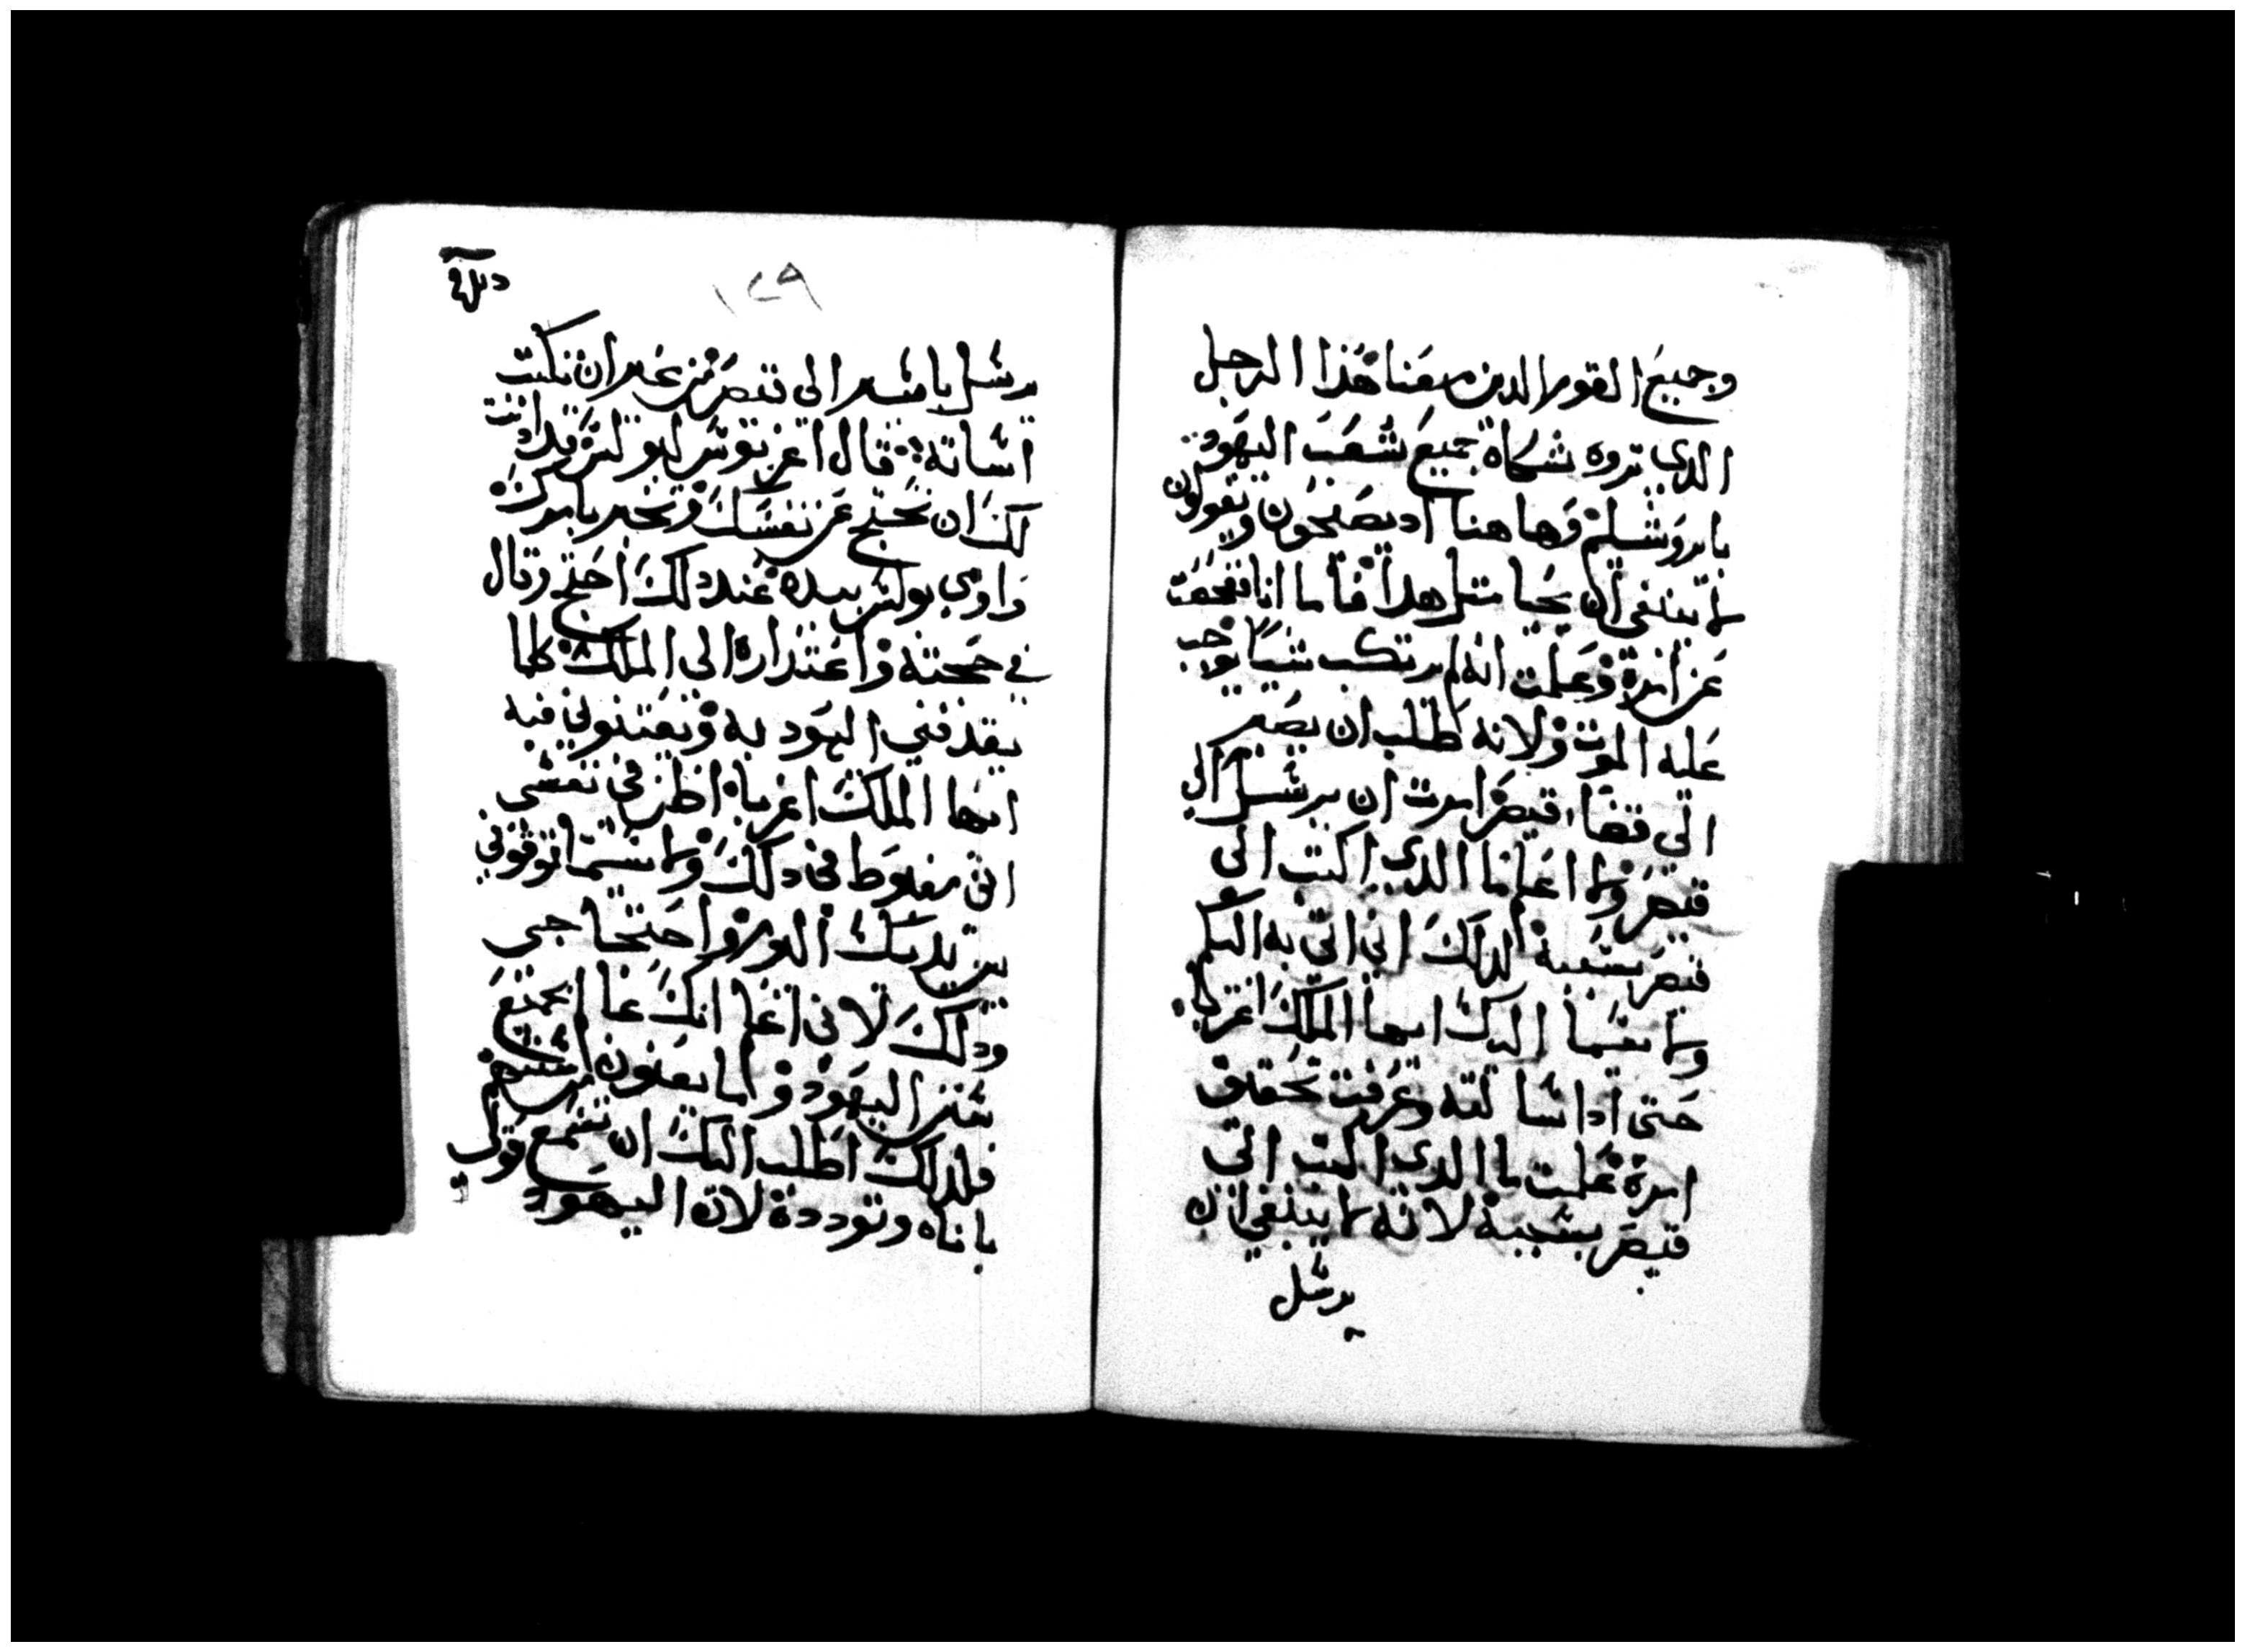 وجميع القوم الدين معنا هذا الرجل
الدي تروه شكاه جميع شعب اليهود
بايروشليم وهاهنا اد يصيحون ويقولون
ما ينبغي ان يحيا مثل هدا فاما انا فتحققت
عن امره وعلمت انه لم يرتكب شيا يوجب
عليه الموت ولانه طلب ان يصير
الى قضا قيصر امرت ان يرسل الى
قيصر وما اعلم ما الدي اكتب الى
قيصر بسببه لدلك اني اتي به اليكم
ولا سيما اليك ايها الملك اغرباه
حتى ادا سالته وعرفت تحقيق
امره علمت ما الدي اكتب الى
قيصر بسببه لانه ما ينبغي ان
يرسل
١٢٩
يرسل باسير الى قيصر من غير ان نكتب
اساته قال اغريبوس لبولس قد ادنت
لك ان تحتج عن نفسك وتخبر بامرك
واومى بولس بيده عند دلك احتج وقال
في حجته واعتداره الى الملك كلما
يقدفني اليهود به ويعتدوني فيه
ايها الملك اغرباه اظن في نفسي
انني مغبوط في دلك ولا سيما توقوفي
بين يديك اليوم واحتجاجي
ودلك لاني اعلم انك عالم بجميع
سنن اليهود و
فلدلك اطلب اليك ان تسمع قولي
باناه وتودده لان اليهود